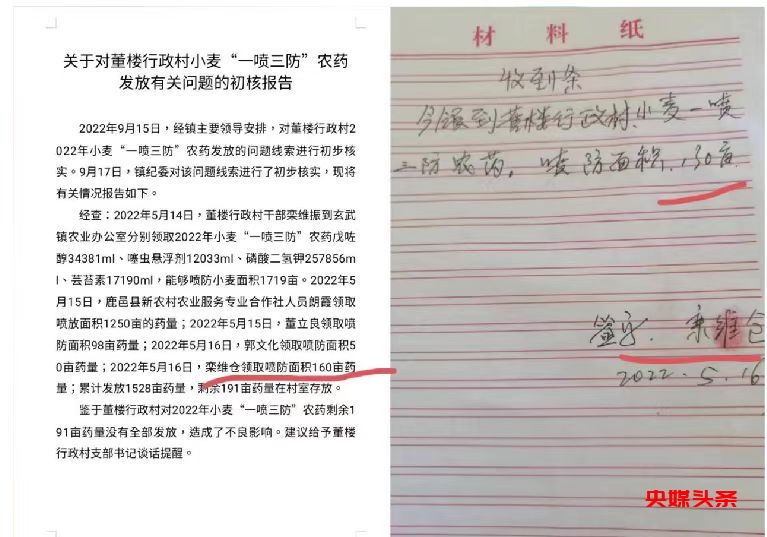 关于对董楼行政村小麦“一喷三防”农药
发放有关问题的初核报告
2022年9月15日，经镇主要领导安排，对董楼行政村2
022年小麦“一喷三防”农药发放的问题线索进行初步核
实。9月17日，镇纪委对该问题线索进行了初步核实，现将
有关情况报告如下。
经查：2022年5月14日，董楼行政村干部栾维振到玄武
镇农业办公室分别领取2022年小麦“一喷三防”农药戊唑
醇34381ml、噻虫悬浮剂12033ml、磷酸二氢钾257856m
l、芸苔素17190ml，能够喷防小麦面积1719亩。2022年
5月15日，鹿邑县新农村农业服务专业合作社人员朗霞领取
喷放面积1250亩的药量；2022年5月15日，董立良领取喷
防面积98亩药量；2022年5月16日，郭文化领取喷防面积5
0亩药量；2022年5月16日，栾维仓领取喷防面积160亩药
量；累计发放1528亩药量，剩余191亩药量在村室存放。
鉴于董楼行政村对2022年小麦“一喷三防”农药剩余1
91亩药量没有全部发放，造成了不良影响。建议给予董楼
行政村支部书记谈话提醒。
材料纸
收到条
今领到董楼行政村小麦一喷
三防农药，喷防面积，130亩
签字．栾维仓
2022.5.16
央媒头条